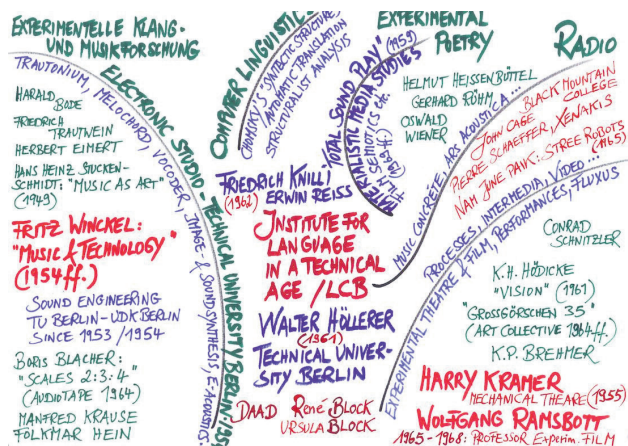 EXPERIMENTELLE KLANG-
UND MUSIKFORSCHUNG
TRAUTONIUM, MELOCHORD, VOCODER, IMAGE- & SOUNDSYNTHESIS, E-ACOUSTICS
HARALD
BODE
FRIEDRICH
TRAUTWEIN
HERBERT EIMERT
HANS HEINZ STUCKEN-
SCHMIDT: "MUSIC AS ART"
(1949)
FRITZ WINCKEL:
"MUSIC & TECHNOLOGY"
(1954ff.)
SOUND ENGINEERING
TU BERLIN-UDK BERLIN
SINCE 1953/1954
BORIS BLACHER:
"SCALES 2:3:4"
(AUDIOTAPE 1964)
MANFRED KRAUSE
FOLKMAR HEIN
ELECTRONIC STUDIO - TECHNICAL UNIVERSITY BERLIN
COMPUTER LINGUISTICS
CHOMSKY'S "SYNTACTIC STRUCTURES"
AUTOMATIC TRANSLATION
STRUCTURALIST ANALYSIS
"TOTAL SOUND PLAY" (1959)
MATERIALISTIC MEDIA STUDIES
FILM SEMIOTICS etc.
FRIEDRICH KNILLI
(1962) ERWIN REISS
INSTITUTE FOR
LANGUAGE
IN A TECHNICAL
AGE / LCB
WALTER HÖLLERER
(1961)
TECHNICAL UNIVER-
SITY BERLIN
DAAD RENÉ BLOCK
URSULA BLOCK
EXPERIMENTAL
POETRY
HELMUT HEISSENBÜTTEL
GERHARD RÜHM
OSWALD
WIENER
RADIO
MUSIC CONCRETE, ARS ACOUSTICA ...
BLACK MOUNTAIN
COLLEGE
JOHN CAGE
PIERRE SCHAEFFER, XENAKIS
NAM JUNE PAIK: STREE ROBOTS
(1965)
PROCESSES, INTERMEDIA, VIDEO ...
EXPERIMENTAL THEATRE & FILM, PERFORMANCES, FLUXUS
CONRAD
SCHNITZLER
K.H. HÖDICKE
"VISION" (1961)
"GROSSGÖRSCHEN 35"
(ART COLLECTIVE 1964ff.)
K.P. BREHMER
HARRY KRAMER
MECHANICAL THEARE (1955)
WOLFGANG RAMSBOTT
1965-1968: PROFESSOR EXPERIM. FILM